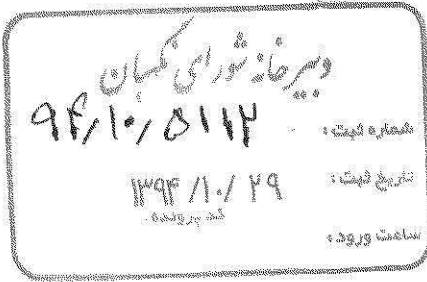 دبیرخانه شورای نگهبان
شماره ثبت: ۹۴/۱۰/۵۱۱۲
تاریخ ثبت: ۱۳۹۴/۱۰/۲۹
کد پرونده:
ساعت ورود: